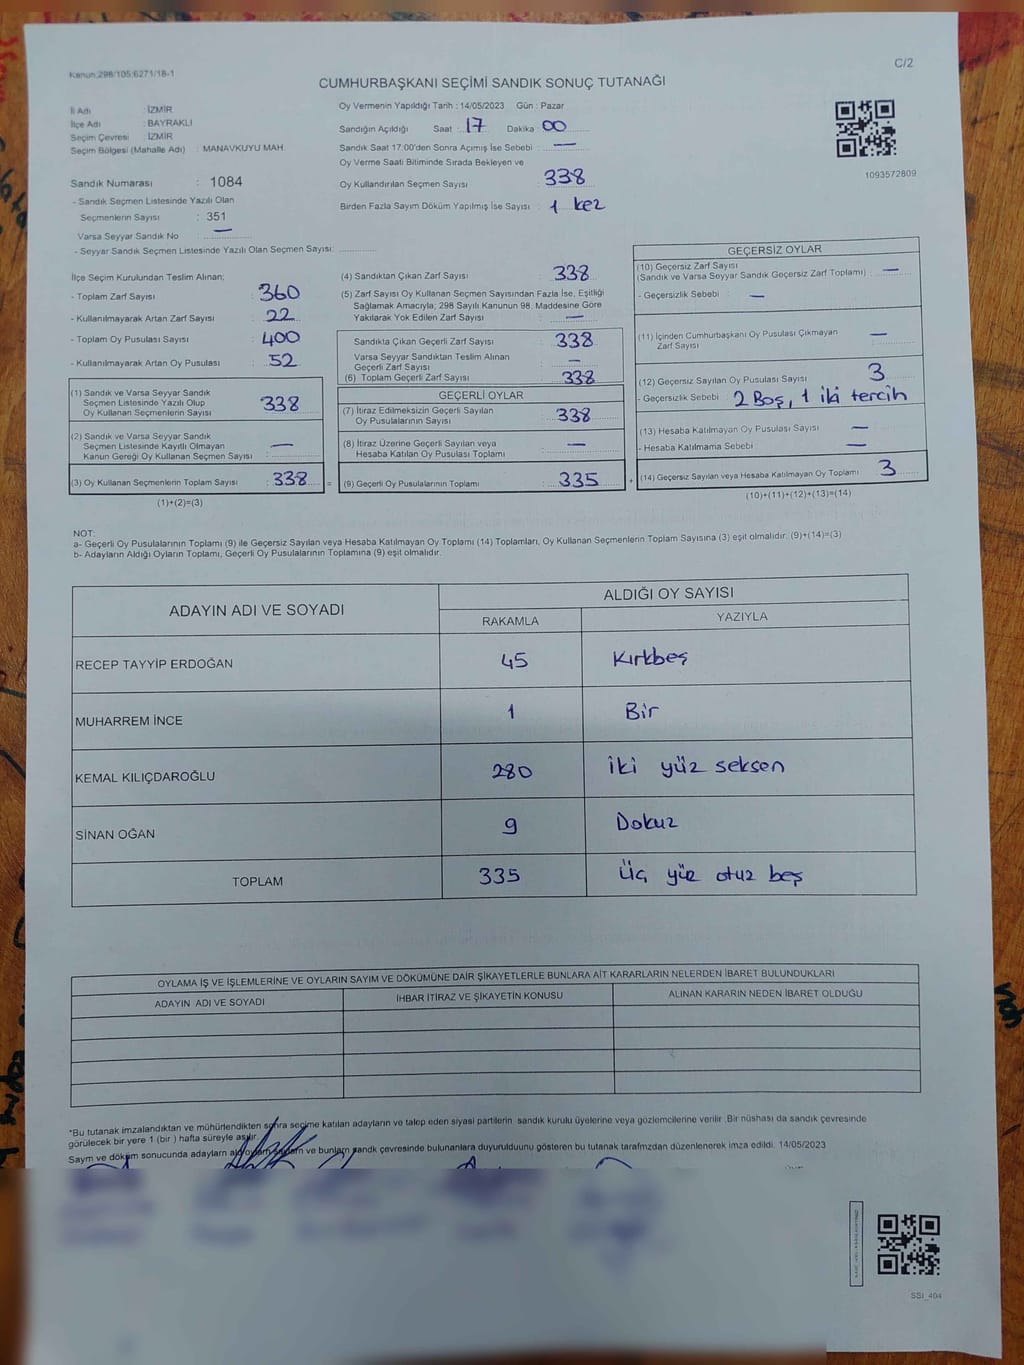 Kanun:298/105;6271/18-1
C/2
CUMHURBAŞKANI SEÇİMİ SANDIK SONUÇ TUTANAĞI
İli Adı : İZMİR
İlçe Adı : BAYRAKLI
Seçim Çevresi : İZMİR
Seçim Bölgesi (Mahalle Adı) : MANAVKUYU MAH.
Sandık Numarası : 1084
- Sandık Seçmen Listesinde Yazılı Olan
Seçmenlerin Sayısı : 351
Varsa Seyyar Sandık No : —
- Seyyar Sandık Seçmen Listesinde Yazılı Olan Seçmen Sayısı:
Oy Vermenin Yapıldığı Tarih : 14/05/2023 Gün : Pazar
Sandığın Açıldığı Saat : 17 Dakika : 00
Sandık Saat 17:00'den Sonra Açımış İse Sebebi : —
Oy Verme Saati Bitiminde Sırada Bekleyen ve
Oy Kullandırılan Seçmen Sayısı : 338
Birden Fazla Sayım Döküm Yapılmış İse Sayısı : 1 kez
1093572809
İlçe Seçim Kurulundan Teslim Alınan;
- Toplam Zarf Sayısı : 360
- Kullanılmayarak Artan Zarf Sayısı : 22
- Toplam Oy Pusulası Sayısı : 400
- Kullanılmayarak Artan Oy Pusulası : 52
(1) Sandık ve Varsa Seyyar Sandık
Seçmen Listesinde Yazılı Olup
Oy Kullanan Seçmenlerin Sayısı : 338
(2) Sandık ve Varsa Seyyar Sandık
Seçmen Listesinde Kayıtlı Olmayan
Kanun Gereği Oy Kullanan Seçmen Sayısı : —
(3) Oy Kullanan Seçmenlerin Toplam Sayısı : 338
(1)+(2)=(3)
(4) Sandıktan Çıkan Zarf Sayısı : 338
(5) Zarf Sayısı Oy Kullanan Seçmen Sayısından Fazla İse, Eşitliği
Sağlamak Amacıyla; 298 Sayılı Kanunun 98. Maddesine Göre
Yakılarak Yok Edilen Zarf Sayısı : —
Sandıkta Çıkan Geçerli Zarf Sayısı : 338
Varsa Seyyar Sandıktan Teslim Alınan
Geçerli Zarf Sayısı : —
(6) Toplam Geçerli Zarf Sayısı : 338
=
GEÇERLİ OYLAR
(7) İtiraz Edilmeksizin Geçerli Sayılan
Oy Pusulasının Sayısı : 338
(8) İtiraz Üzerine Geçerli Sayılan veya
Hesaba Katılan Oy Pusulası Toplamı : —
(9) Geçerli Oy Pusulalarının Toplamı : 335
+
GEÇERSİZ OYLAR
(10) Geçersiz Zarf Sayısı
(Sandık ve Varsa Seyyar Sandık Geçersiz Zarf Toplamı) : —
- Geçersizlik Sebebi : —
(11) İçinden Cumhurbaşkanı Oy Pusulası Çıkmayan
Zarf Sayısı : —
(12) Geçersiz Sayılan Oy Pusulası Sayısı : 3
- Geçersizlik Sebebi : 2 Boş, 1 iki tercih
(13) Hesaba Katılmayan Oy Pusulası Sayısı : —
- Hesaba Katılmama Sebebi : —
(14) Geçersiz Sayılan veya Hesaba Katılmayan Oy Toplamı : 3
(10)+(11)+(12)+(13)=(14)
NOT:
a- Geçerli Oy Pusulalarının Toplamı (9) ile Geçersiz Sayılan veya Hesaba Katılmayan Oy Toplamı (14) Toplamları, Oy Kullanan Seçmenlerin Toplam Sayısına (3) eşit olmalıdır. (9)+(14)=(3)
b- Adayların Aldığı Oyların Toplamı, Geçerli Oy Pusulalarının Toplamına (9) eşit olmalıdır.
ADAYIN ADI VE SOYADI
ALDIĞI OY SAYISI
RAKAMLA YAZIYLA
RECEP TAYYİP ERDOĞAN 45 Kırkbeş
MUHARREM İNCE 1 Bir
KEMAL KILIÇDAROĞLU 280 İki yüz seksen
SİNAN OĞAN 9 Dokuz
TOPLAM 335 Üç yüz otuz beş
OYLAMA İŞ VE İŞLEMLERİNE VE OYLARIN SAYIM VE DÖKÜMÜNE DAİR ŞİKAYETLERLE BUNLARA AİT KARARLARIN NELERDEN İBARET BULUNDUKLARI
ADAYIN ADI VE SOYADI İHBAR İTİRAZ VE ŞİKAYETİN KONUSU ALINAN KARARIN NEDEN İBARET OLDUĞU
*Bu tutanak imzalandıktan ve mühürlendikten sonra seçime katılan adayların ve talep eden siyasi partilerin sandık kurulu üyelerine veya gözlemcilerine verilir. Bir nüshası da sandık çevresinde
görülecek bir yere 1 (bir ) hafta süreyle asılır.
Sayım ve döküm sonucunda adayların ve bunların sandık çevresinde bulunanlara duyurulduunu gösteren bu tutanak tarafmzdan düzenlenerek imza edildi. 14/05/2023
SSI_404